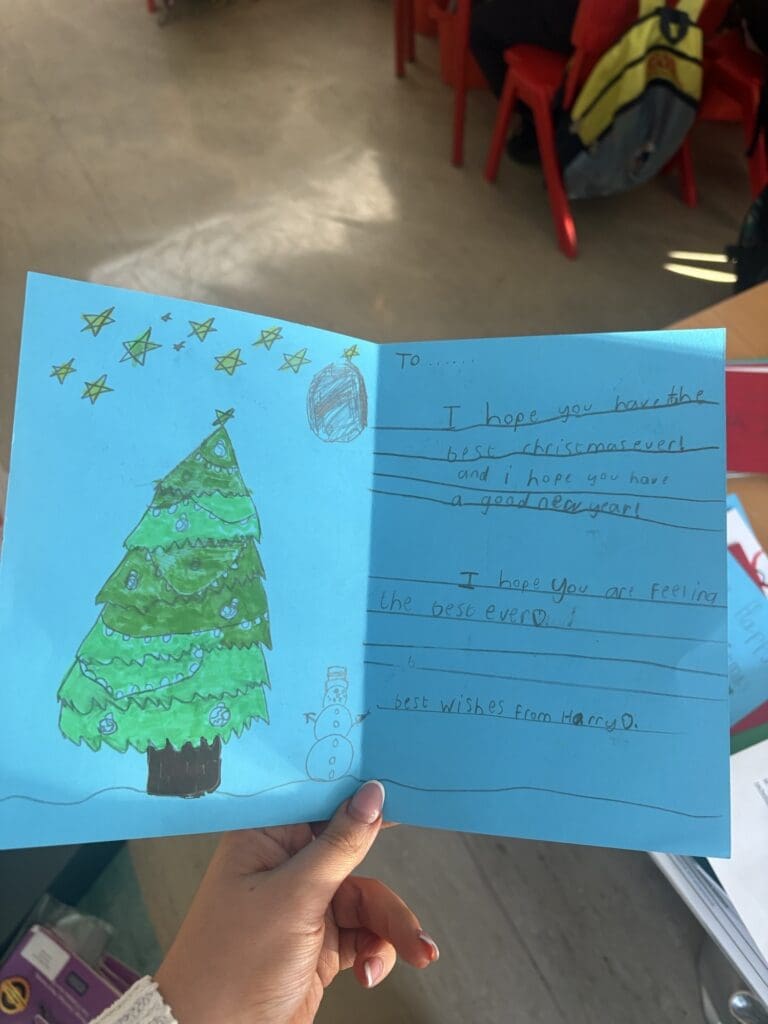 To ......
I hope you have the
best christmas ever!
and i hope you have
a good new year!
I hope you are feeling
the best ever
best wishes from Harry